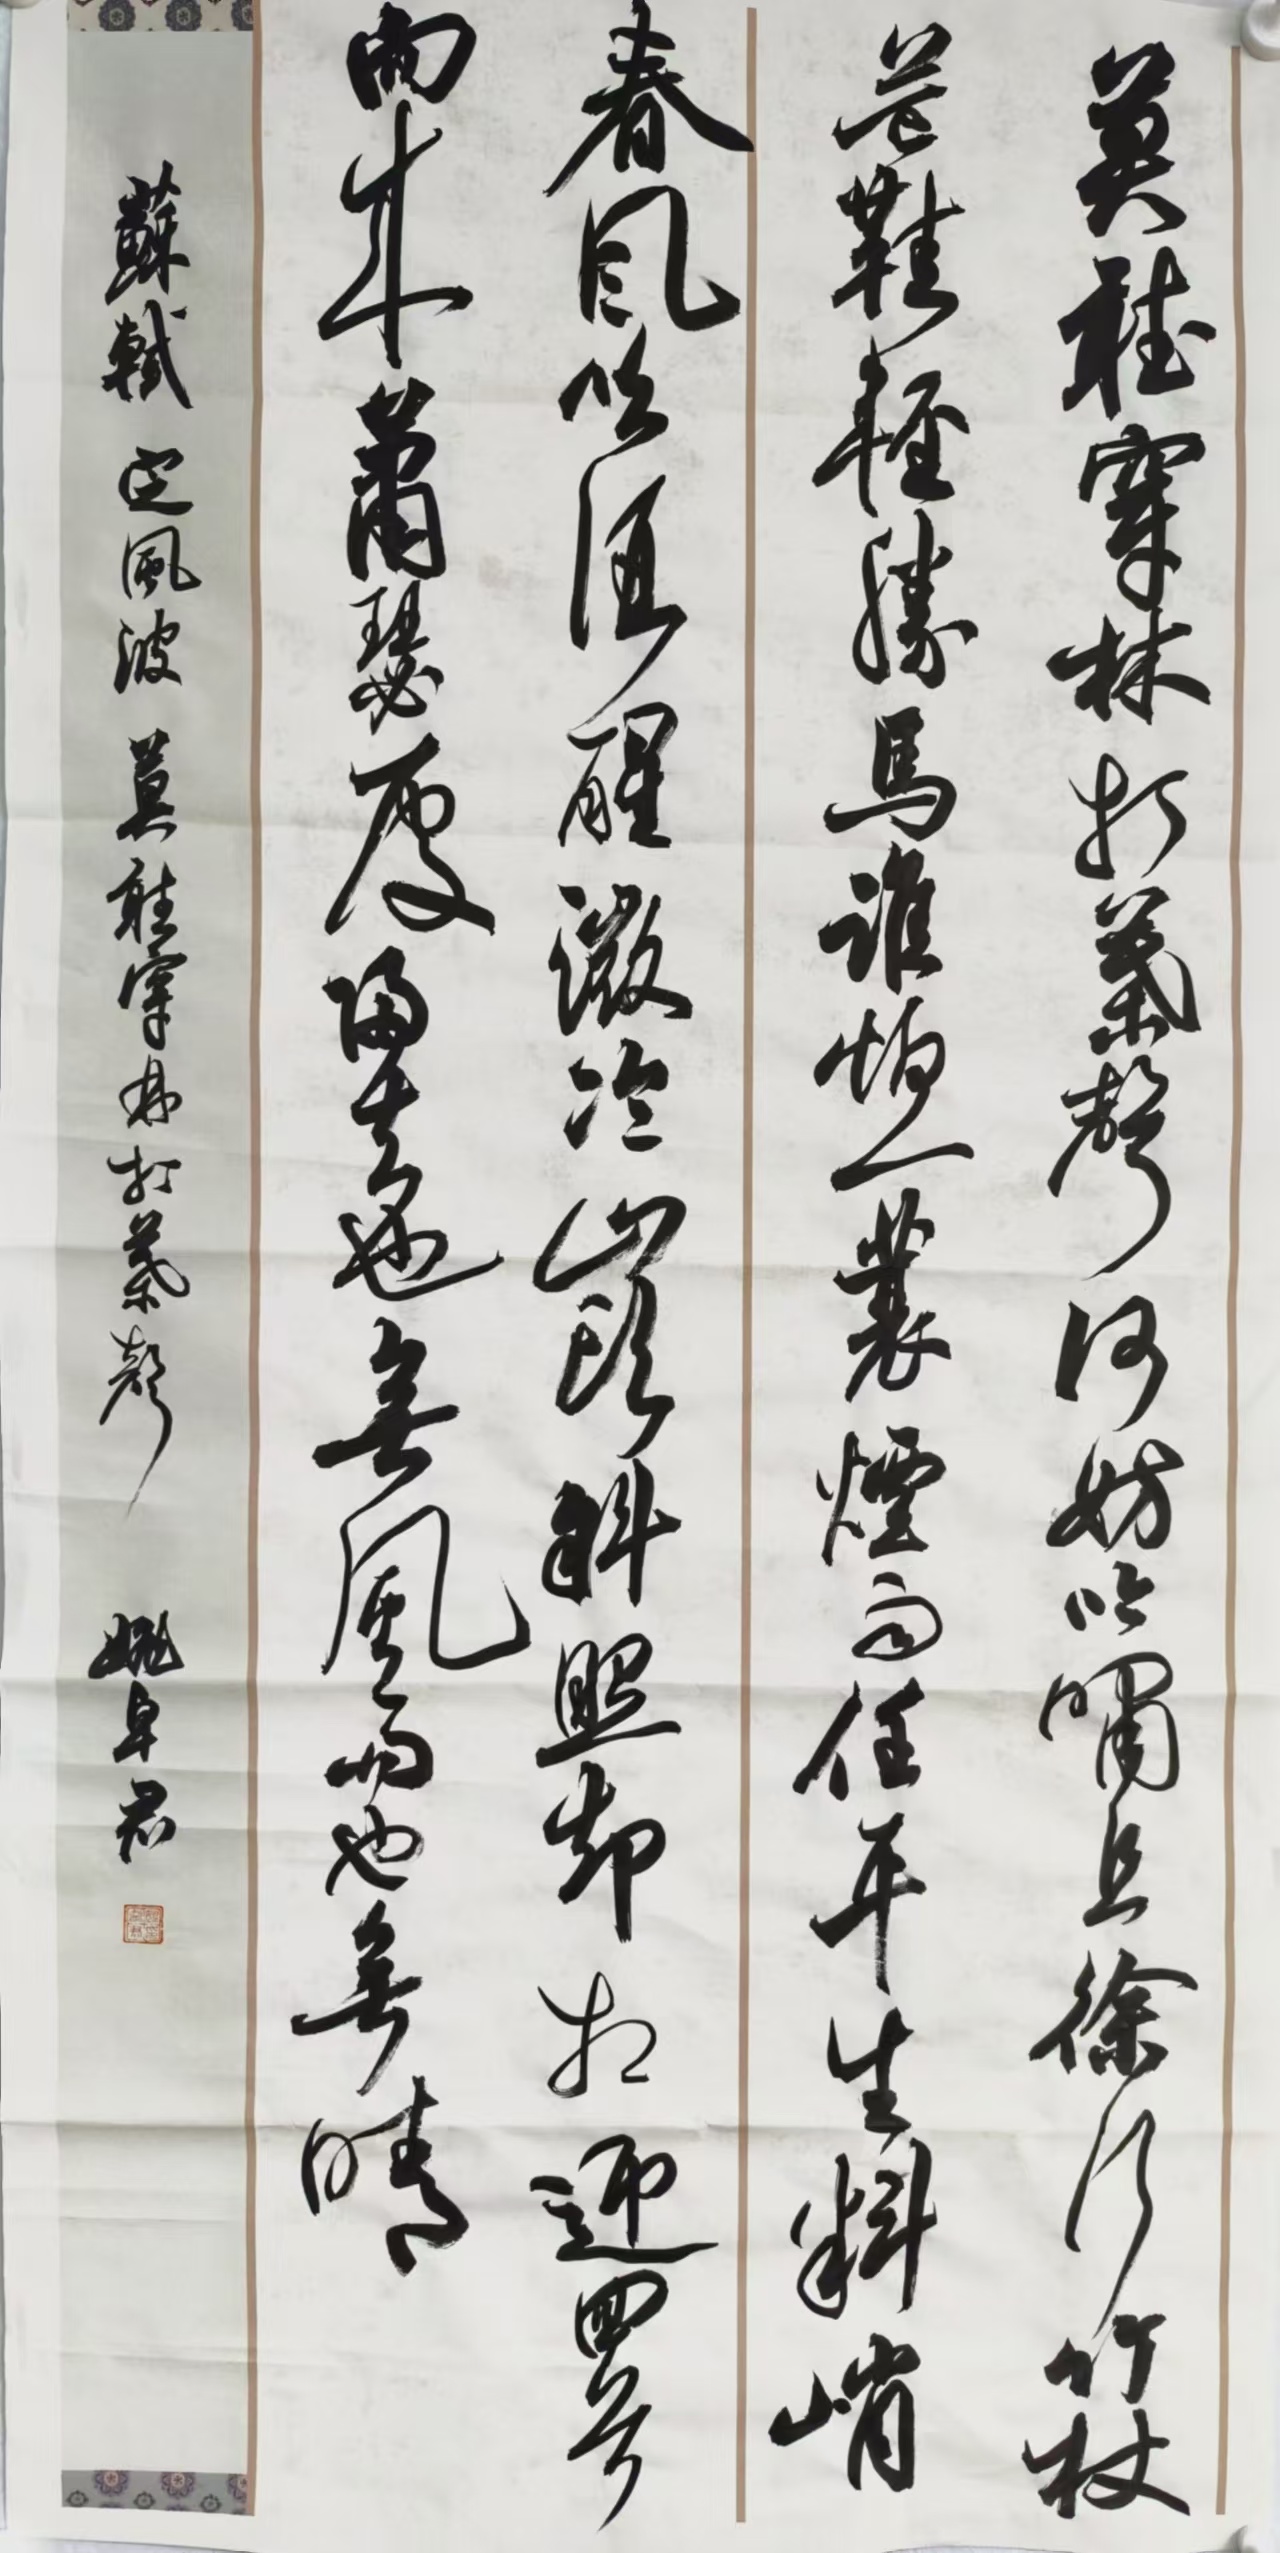 莫聽穿林打葉聲何妨吟嘯且徐行竹杖
芒鞋輕勝馬誰怕一蓑煙雨任平生料峭
春風吹酒醒微冷山頭斜照却相迎回首
向來蕭瑟處歸去也無風雨也無晴
蘇軾 定風波 莫聽穿林打葉聲 姚卓君